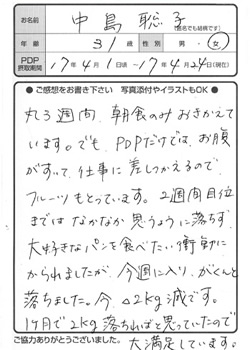 お名前 中島聡子
(匿名でも結構です)
年齢 31歳 性別 男・女
PDP摂取期間 17年4月1日頃〜17年4月24日(現在)
●ご感想をお書き下さい 写真添付やイラストもOK●
丸3週間、朝食のみおきかえて
います。でも、PDPだけでは、お腹
がすいて、仕事に差しつかえるので
フルーツもとっています。2週間目位
まではなかなか思うように落ちず、
大好きなパンを食べたい衝動に
かられましたが、今週に入り、がくんと
落ちました。今、△2kg減です。
1ヶ月で2kg落ちればと思っていたので
大満足しています。
ご協力ありがとうございました。